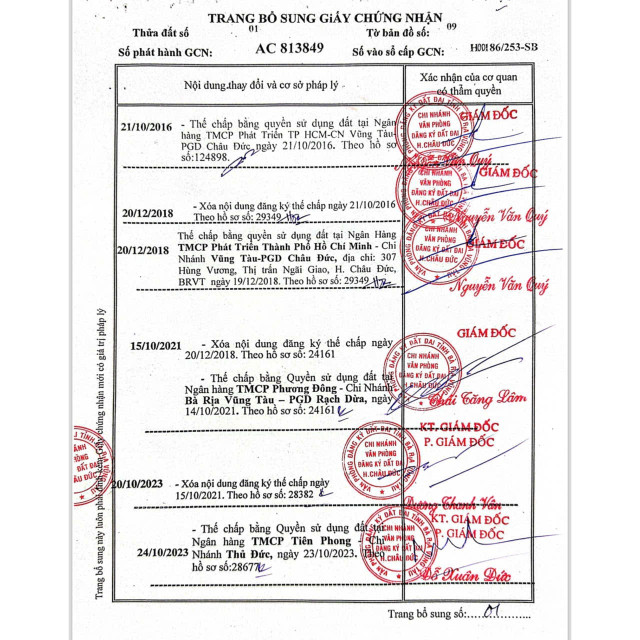 TRANG BỔ SUNG GIẤY CHỨNG NHẬN
Thửa đất số 01 Tờ bản đồ số: 09
Số phát hành GCN: AC 813849 Số vào sổ cấp GCN: H00186/253-SB
Nội dung thay đổi và cơ sở pháp lý
Xác nhận của cơ quan
có thẩm quyền
21/10/2016 - Thế chấp bằng quyền sử dụng đất tại Ngân
hàng TMCP Phát Triển TP HCM-CN Vũng Tàu-
PGD Châu Đức, ngày 21/10/2016. Theo hồ sơ
số:124898.
GIÁM ĐỐC
CHI NHÁNH
VĂN PHÒNG
ĐĂNG KÝ ĐẤT ĐAI
H. CHÂU ĐỨC
Văn Quý
20/12/2018 - Xóa nội dung đăng ký thế chấp ngày 21/10/2016
Theo hồ sơ số: 29349
GIÁM ĐỐC
CHI NHÁNH
VĂN PHÒNG
ĐĂNG KÝ ĐẤT ĐAI
H. CHÂU ĐỨC
Nguyễn Văn Quý
20/12/2018 Thế chấp bằng quyền sử dụng đất tại Ngân Hàng
TMCP Phát Triển Thành Phố Hồ Chí Minh - Chi
Nhánh Vũng Tàu-PGD Châu Đức, địa chỉ: 307
Hùng Vương, Thị trấn Ngãi Giao, H. Châu Đức,
BRVT ngày 19/12/2018. Theo hồ sơ số: 29349
GIÁM ĐỐC
CHI NHÁNH
VĂN PHÒNG
ĐĂNG KÝ ĐẤT ĐAI
H. CHÂU ĐỨC
Nguyễn Văn Quý
15/10/2021 - Xóa nội dung đăng ký thế chấp ngày
20/12/2018. Theo hồ sơ số: 24161
- Thế chấp bằng Quyền sử dụng đất tại
Ngân hàng TMCP Phương Đông - Chi Nhánh
Bà Rịa Vũng Tàu – PGD Rạch Dừa, ngày
14/10/2021. Theo hồ sơ số: 24161
GIÁM ĐỐC
CHI NHÁNH
VĂN PHÒNG
ĐĂNG KÝ ĐẤT ĐAI
H. CHÂU ĐỨC
Thái Tăng Lâm
20/10/2023 - Xóa nội dung đăng ký thế chấp ngày
15/10/2021. Theo hồ sơ số: 28382
KT. GIÁM ĐỐC
P. GIÁM ĐỐC
CHI NHÁNH
VĂN PHÒNG
ĐĂNG KÝ ĐẤT ĐAI
H. CHÂU ĐỨC
Dương Thanh Vân
24/10/2023 - Thế chấp bằng Quyền sử dụng đất tại
Ngân hàng TMCP Tiên Phong - Chi
Nhánh Thủ Đức, ngày 23/10/2023. Theo
hồ sơ số:28677
KT. GIÁM ĐỐC
P. GIÁM ĐỐC
CHI NHÁNH
VĂN PHÒNG
ĐĂNG KÝ ĐẤT ĐAI
H. CHÂU ĐỨC
Đỗ Xuân Đức
Trang bổ sung số: 01